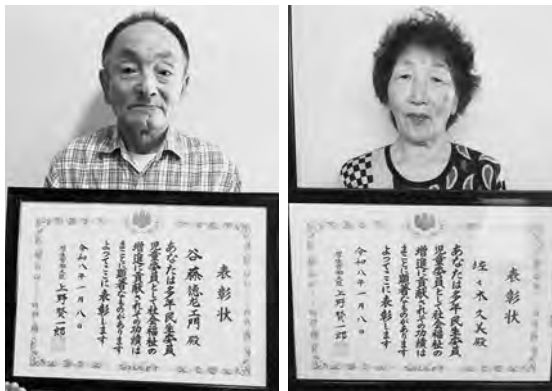 表彰状
谷藤徳左エ門 殿
あなたは多年民生委員
児童委員として社会福祉の
増進に貢献されその功績は
まことに顕著なものがあります
よってここに表彰します
令和八年一月八日
厚生労働大臣 上野賢一郎
表彰状
佐々木久美殿
あなたは多年民生委員
児童委員として社会福祉の
増進に貢献されその功績は
まことに顕著なものがあります
よってここに表彰します
令和八年一月八日
厚生労働大臣 上野賢一郎